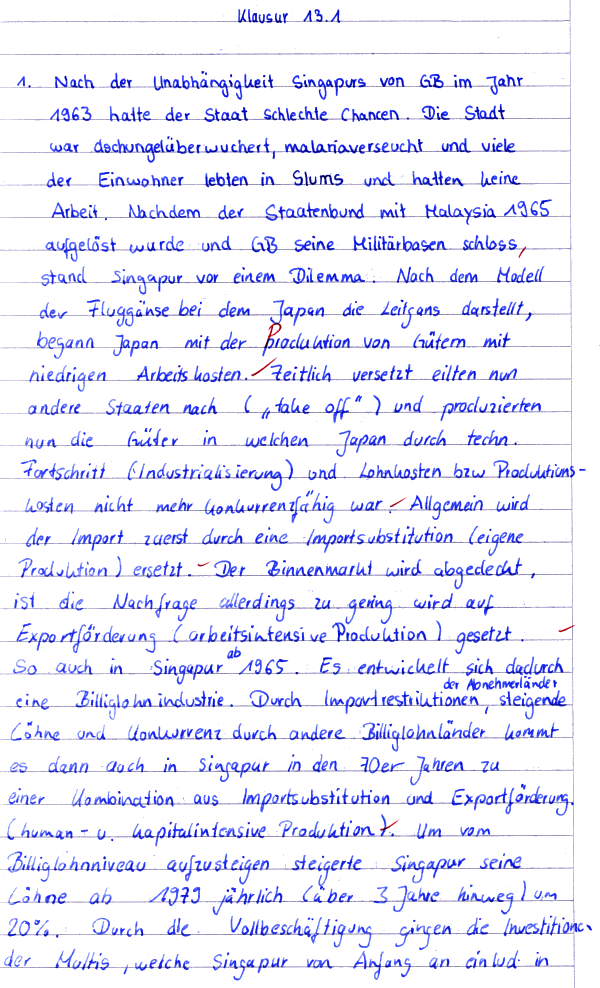 Klausur 13.1
1. Nach der Unabhängigkeit Singapurs von GB im Jahr
1963 hatte der Staat schlechte Chancen. Die Stadt
war dschungelüberwuchert, malariaverseucht und viele
der Einwohner lebten in Slums und hatten keine
Arbeit. Nachdem der Staatenbund mit Malaysia 1965
aufgelöst wurde und GB seine Militärbasen schloss,
stand Singapur vor einem Dilemma. Nach dem Modell
der Fluggänse bei dem Japan die Leitgans darstellt,
begann Japan mit der Produktion von Gütern mit
niedrigen Arbeitskosten. Zeitlich versetzt eilten nun
andere Staaten nach ( „take off“ ) und produzierten
nun die Güter in welchen Japan durch techn.
Fortschritt (Industrialisierung) und Lohnkosten bzw Produktions-
kosten nicht mehr konkurrenzfähig war. Allgemein wird
der Import zuerst durch eine Importsubstitution (eigene
Produktion) ersetzt. Der Binnenmarkt wird abgedeckt,
ist die Nachfrage allerdings zu gering wird auf
Exportförderung (arbeitsintensive Produktion) gesetzt.
So auch in Singapur ab 1965. Es entwickelt sich dadurch
eine Billiglohnindustrie. Durch Importrestriktionen der Abnehmerländer, steigende
Löhne und Konkurrenz durch andere Billiglohnländer kommt
es dann auch in Singapur in den 70er Jahren zu
einer Kombination aus Importsubstitution und Exportförderung.
(human- u. kapitalintensive Produktion). Um vom
Billiglohnniveau aufzusteigen steigerte Singapur seine
Löhne ab 1979 jährlich (über 3 Jahre hinweg) um
20%. Durch die Vollbeschäftigung gingen die Investitionen
der Multis, welche Singapur von Anfang an einlud in